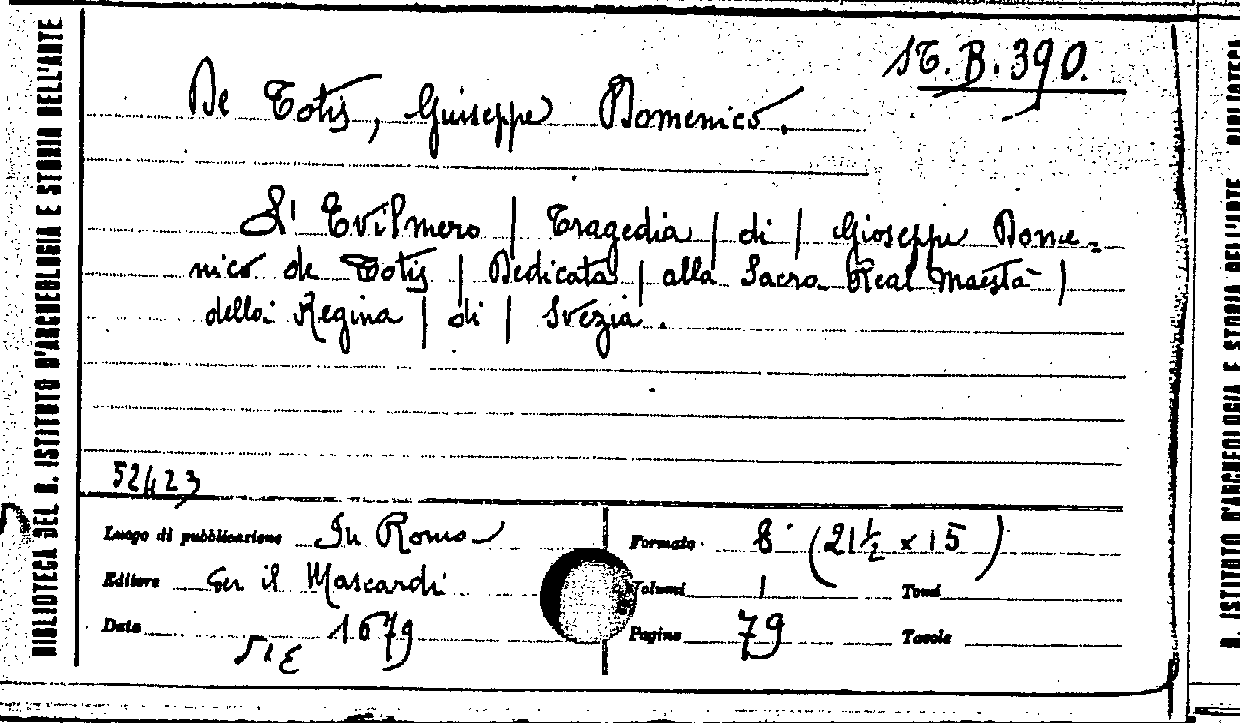 ST. B. 390.
De Totis, Giuseppe Domenico.
L'Evilmero | Tragedia | di | Gioseppe Dome-
nico de Totis | Dedicata | alla Sacra Real Maestà |
della Regina | di | Svezia.
52423
Luogo di pubblicazione In Roma
Editore Per il Mascardi
Data 1679
Formato 8° (21½ x 15)
Volumi 1 Tomi
Pagine 79 Tavole
BIBLIOTECA DEL R. ISTITUTO D'ARCHEOLOGIA E STORIA DELL'ARTE
R. ISTITUTO D'ARCHEOLOGIA E STORIA DELL'ARTE BIBLIOTECA